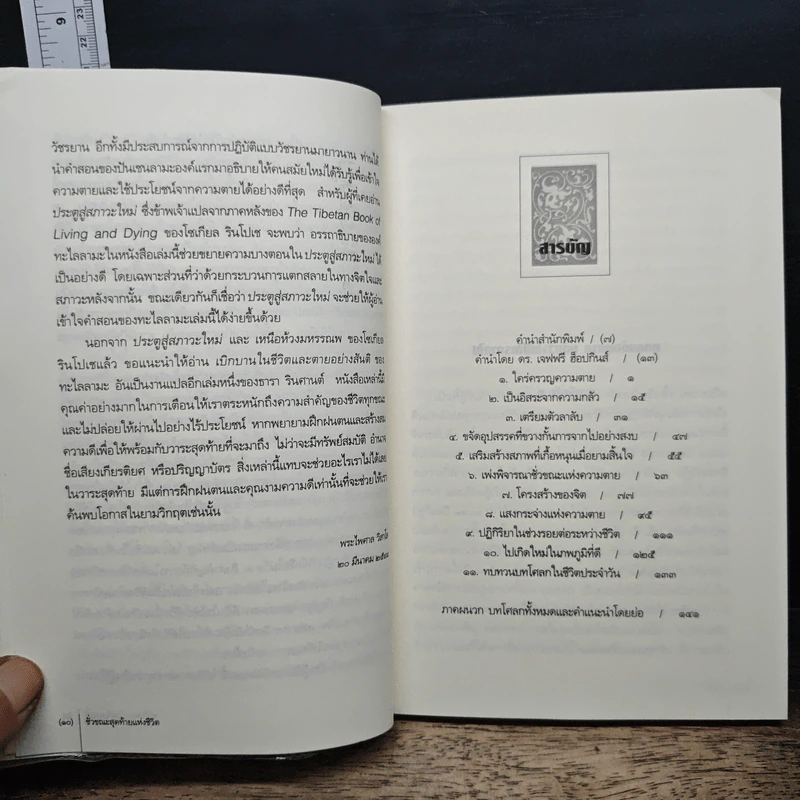 9
23
22
วัชรยาน อีกทั้งมีประสบการณ์จากการปฏิบัติแบบวัชรยานมายาวนาน ท่านได้
นำคำสอนของปันเชนลามะองค์แรกมาอธิบายให้คนสมัยใหม่ได้รับรู้เพื่อเข้าใจ
ความตายและใช้ประโยชน์จากความตายได้อย่างดีที่สุด สำหรับผู้ที่เคยอ่าน
ประตูสู่สภาวะใหม่ ซึ่งข้าพเจ้าแปลจากภาคหลังของ The Tibetan Book of
Living and Dying ของโซเกียล รินโปเช จะพบว่า อรรถาธิบายขององค์
ทะไลลามะในหนังสือเล่มนี้ช่วยขยายความบางตอนใน ประตูสู่สภาวะใหม่ ได้
เป็นอย่างดี โดยเฉพาะส่วนที่ว่าด้วยกระบวนการแตกสลายในทางจิตใจและ
สภาวะหลังจากนั้น ขณะเดียวกันก็เชื่อว่า ประตูสู่สภาวะใหม่ จะช่วยให้ผู้อ่าน
เข้าใจคำสอนของทะไลลามะเล่มนี้ได้ง่ายขึ้นด้วย
นอกจาก ประตูสู่สภาวะใหม่ และ เหนือห้วงมหรรณพ ของโซเกียล
รินโปเชแล้ว ขอแนะนำให้อ่าน เบิกบานในชีวิตและตายอย่างสันติ ของ
ทะไลลามะ อันเป็นงานแปลอีกเล่มหนึ่งของธารา รินศานต์ หนังสือเหล่านี้มี
คุณค่าอย่างมากในการเตือนให้เราตระหนักถึงความสำคัญของชีวิตทุกขณะ
และไม่ปล่อยให้ผ่านไปอย่างไร้ประโยชน์ หากพยายามฝึกฝนตนและสร้างสม
ความดีเพื่อให้พร้อมกับวาระสุดท้ายที่จะมาถึง ไม่ว่าจะมีทรัพย์สมบัติ อำนาจ
ชื่อเสียงเกียรติยศ หรือปริญญาบัตร สิ่งเหล่านี้แทบจะช่วยอะไรเราไม่ได้เลย
ในวาระสุดท้าย มีแต่การฝึกฝนตนและคุณงามความดีเท่านั้นที่จะช่วยให้เรา
ค้นพบโอกาสในยามวิกฤตเช่นนั้น
พระไพศาล
๒๐ มีนาคม
(๑๐) ชั่วขณะสุดท้ายแห่งชีวิต
สารบัญ
คำนำสำนักพิมพ์ / (๗)
คำนำโดย ดร. เจฟฟรี ฮ็อปกินส์ / (๑๓)
๑. ใคร่ครวญความตาย / ๑
๒. เป็นอิสระจากความกลัว / ๑๕
๓. เตรียมตัวลาลับ / ๓๑
๔. ขจัดอุปสรรคที่ขวางกั้นการจากไปอย่างสงบ / ๔๗
๕. เสริมสร้างสภาพที่เกื้อหนุนเมื่อยามสิ้นใจ / ๕๕
๖. เพ่งพิจารณาชั่วขณะแห่งความตาย / ๖๓
๗. โครงสร้างของจิต / ๗๗
๘. แสงกระจ่างแห่งความตาย / ๙๕
๙. ปฏิกิริยาในช่วงรอยต่อระหว่างชีวิต / ๑๑๑
๑๐. ไปเกิดใหม่ในภพภูมิที่ดี / ๑๒๕
๑๑. ทบทวนบทโศลกในชีวิตประจำวัน / ๑๓๓
ภาคผนวก บทโศลกทั้งหมดและคำแนะนำโดยย่อ / ๑๔๑